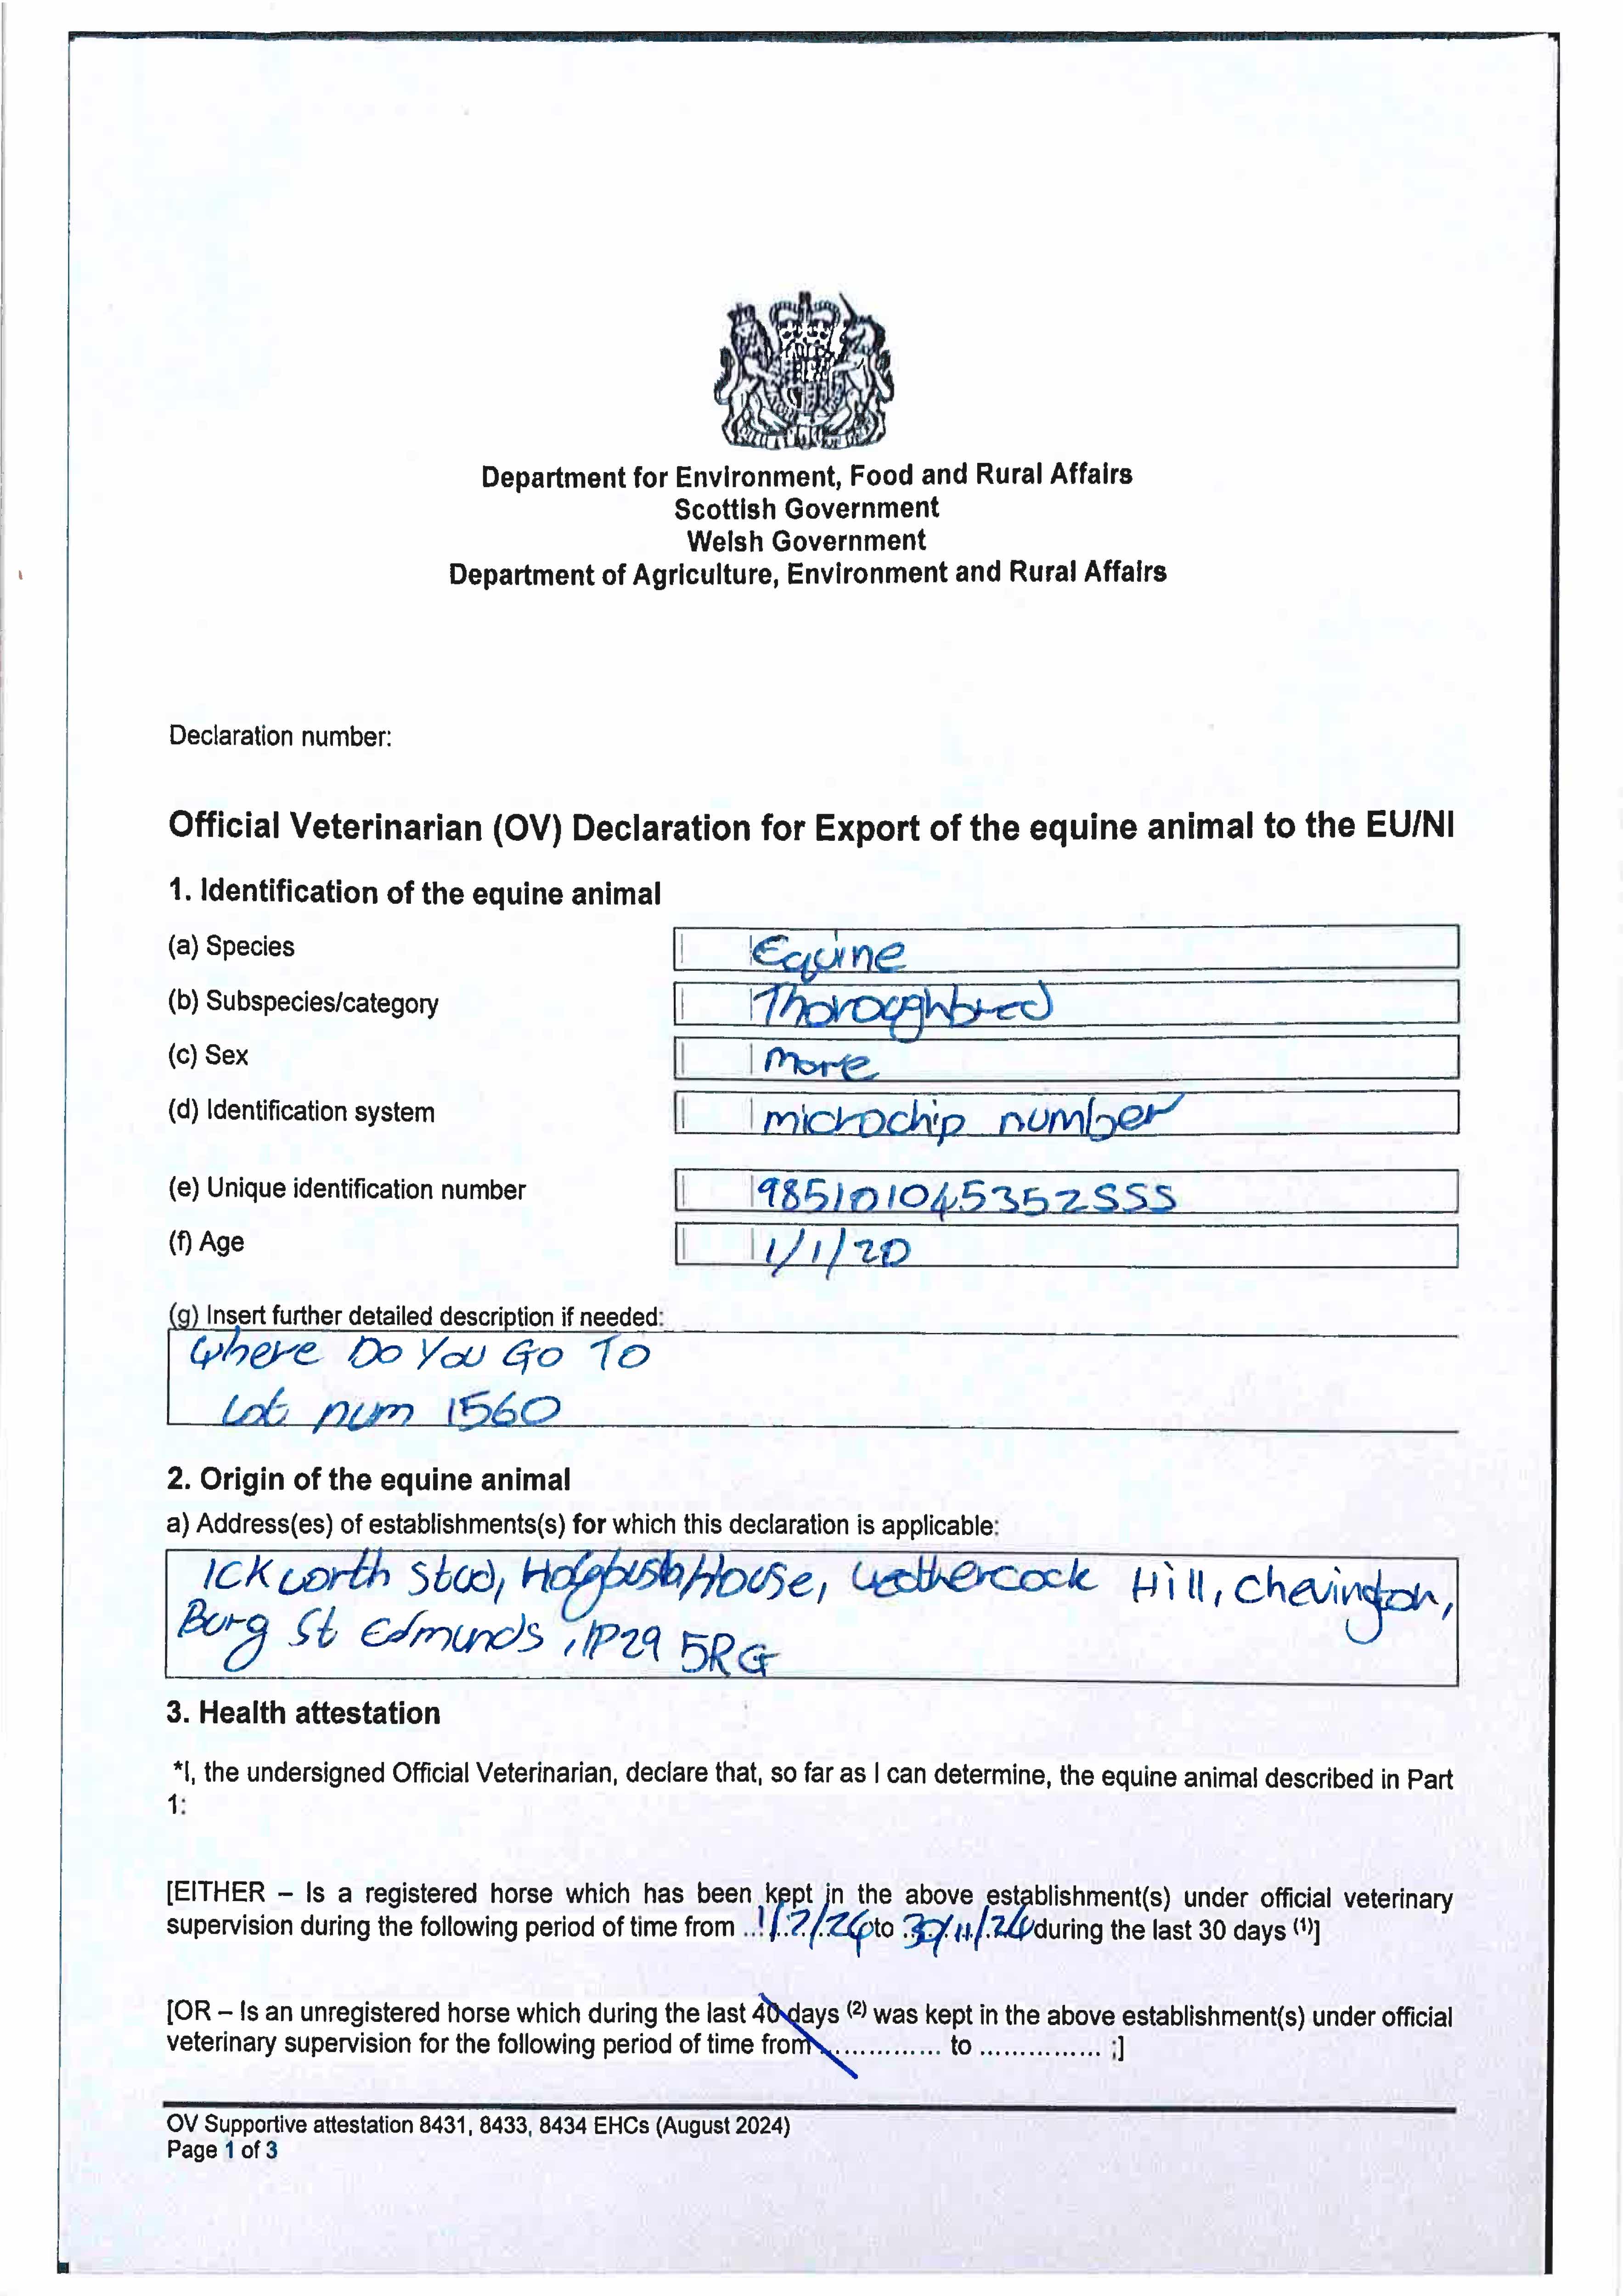 Department for Environment, Food and Rural Affairs
Scottish Government
Welsh Government
Department of Agriculture, Environment and Rural Affairs
Declaration number:
Official Veterinarian (OV) Declaration for Export of the equine animal to the EU/NI
1. Identification of the equine animal
(a) Species Equine
(b) Subspecies/category Thoroughbred
(c) Sex mare
(d) Identification system microchip number
(e) Unique identification number 985101045352555
(f) Age 1/1/20
(g) Insert further detailed description if needed:
Where Do You Go To
Lot num 1560
2. Origin of the equine animal
a) Address(es) of establishments(s) for which this declaration is applicable:
Ickworth Stud, House, Weathercock Hill, Chevington,
Bury St Edmunds, IP29 5RG
3. Health attestation
*I, the undersigned Official Veterinarian, declare that, so far as I can determine, the equine animal described in Part
1:
[EITHER – Is a registered horse which has been kept in the above establishment(s) under official veterinary
supervision during the following period of time from to during the last 30 days (1)]
[OR – Is an unregistered horse which during the last 40 days (2) was kept in the above establishment(s) under official
veterinary supervision for the following period of time from .............. to ............... ;]
OV Supportive attestation 8431, 8433, 8434 EHCs (August 2024)
Page 1 of 3